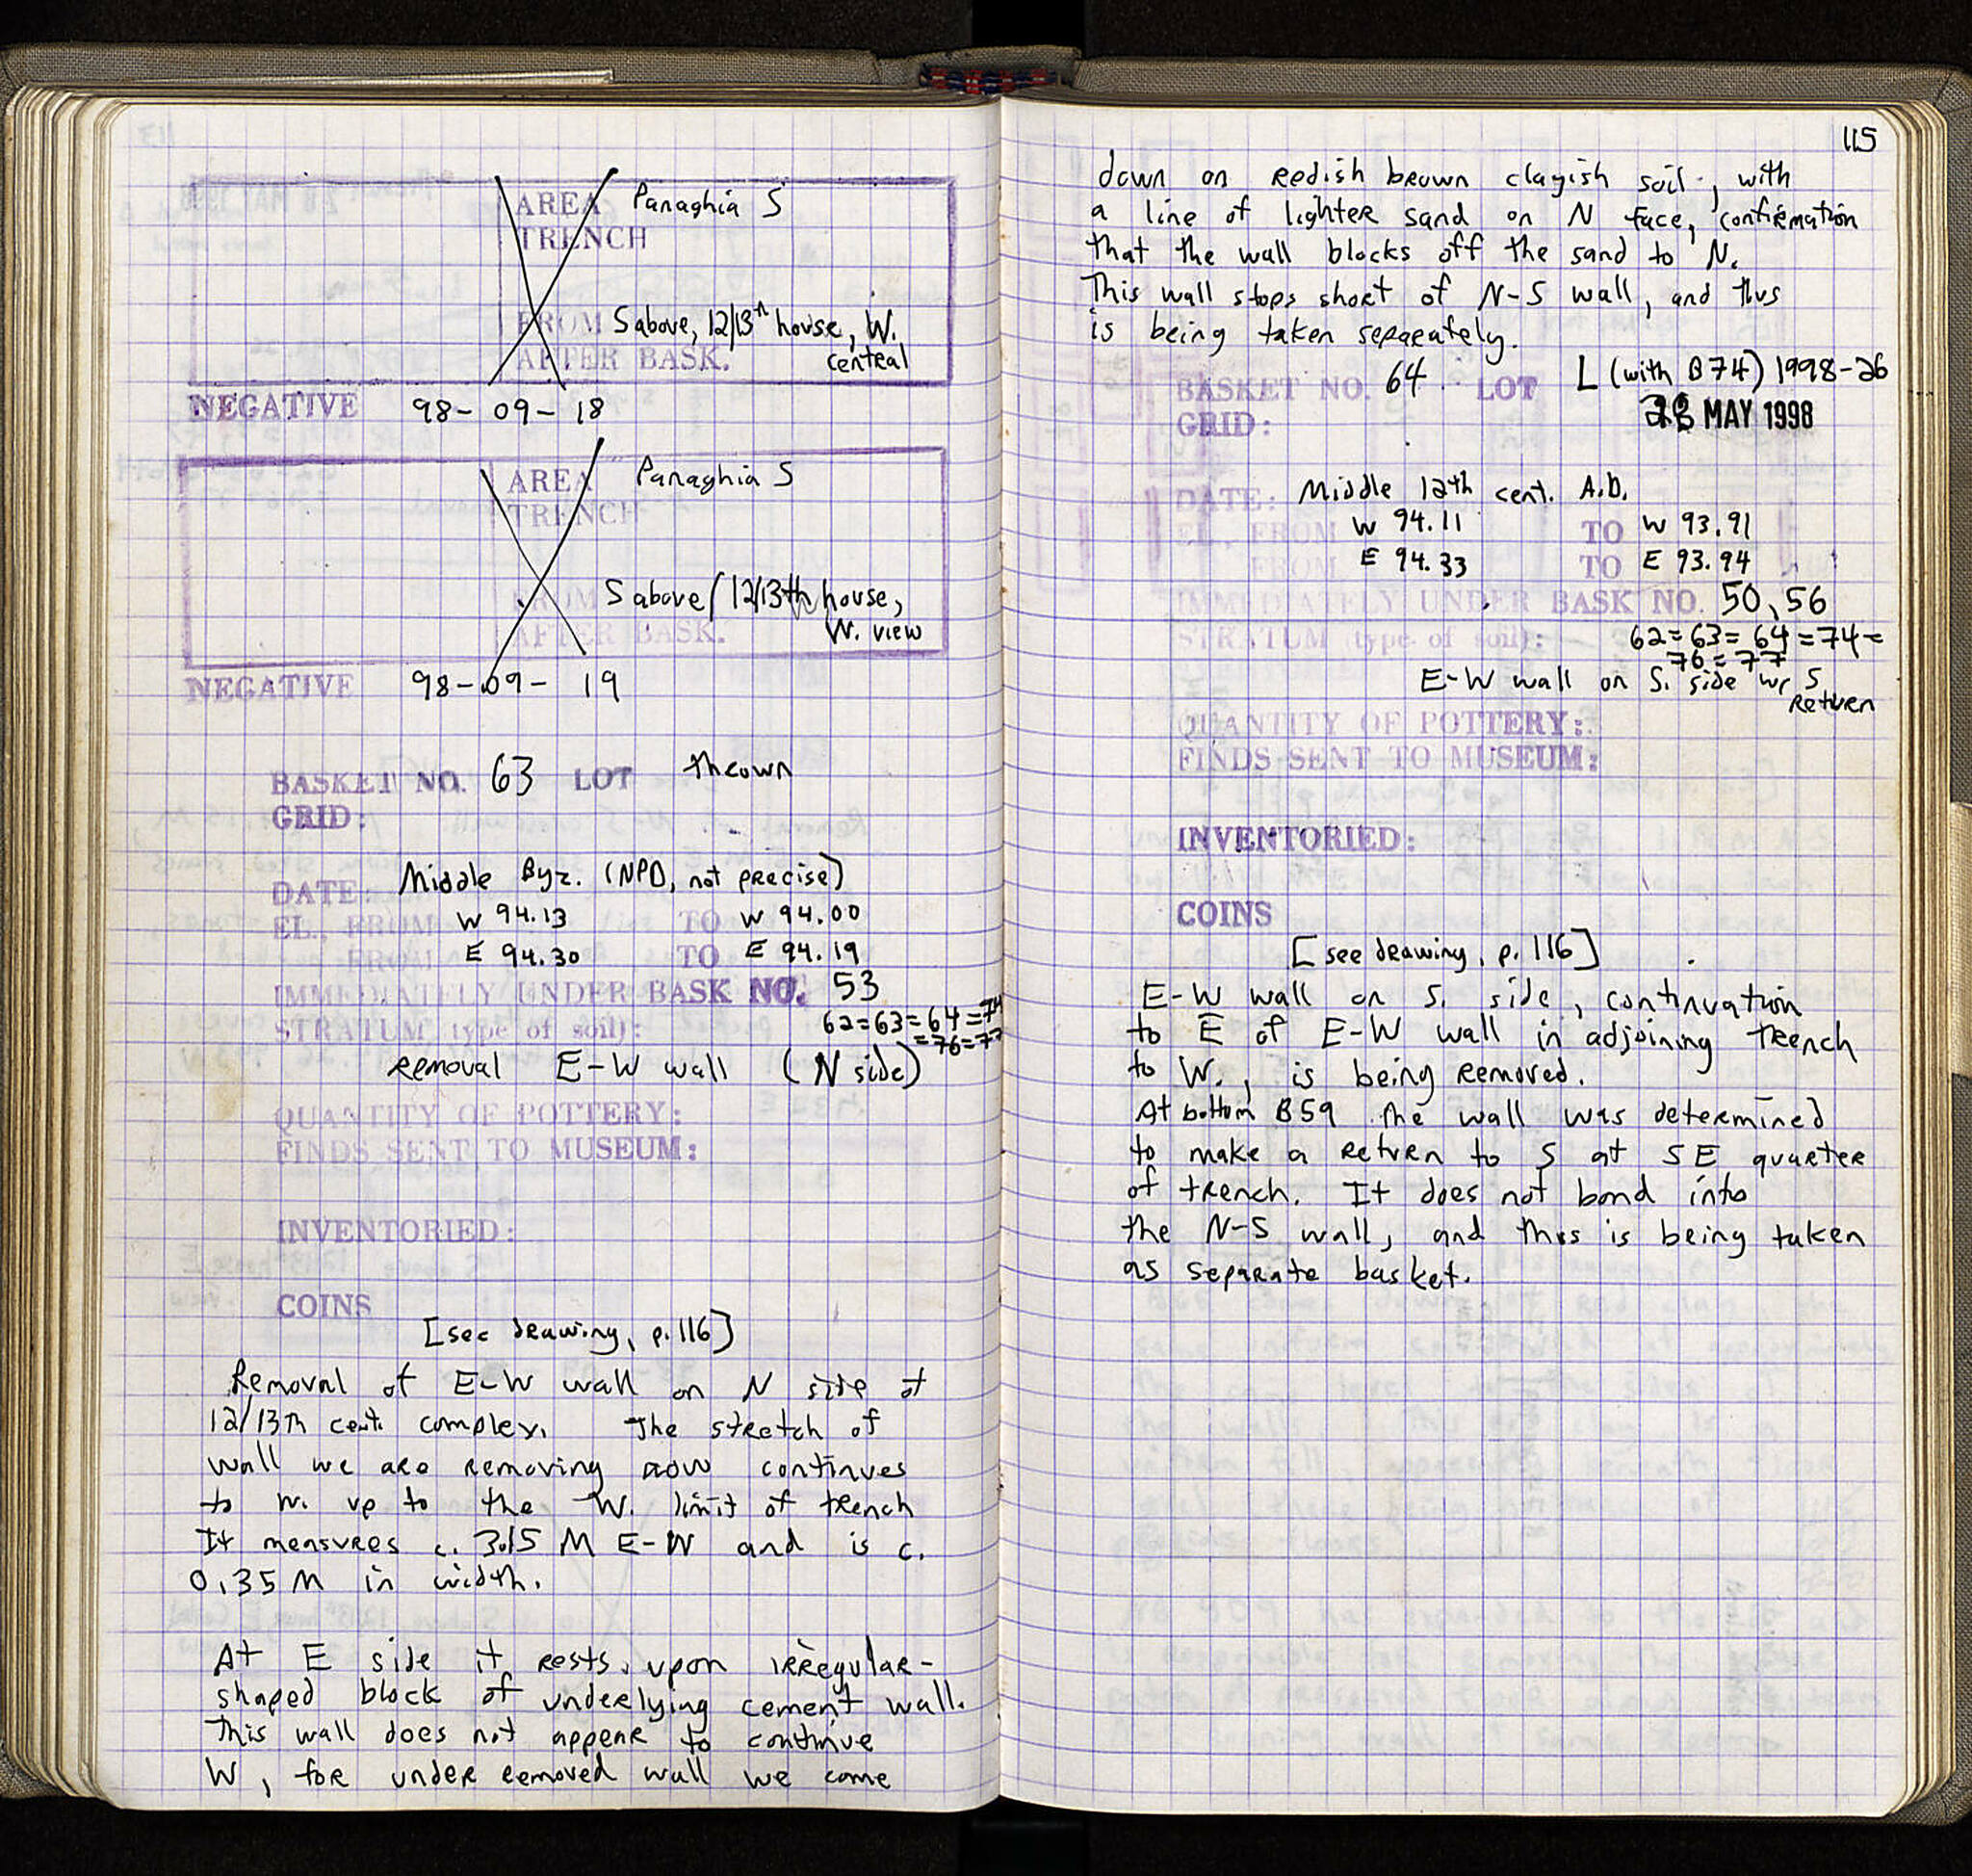 AREA Panaghia S
TRENCH
FROM S above, 12/13th house, W.
AFTER BASK. central
NEGATIVE 98-09-18
AREA Panaghia S
TRENCH
FROM S above (12/13th house,
AFTER BASK. W. view
NEGATIVE 98-09-19
BASKET NO. 63 LOT thrown
GRID:
DATE: Middle Byz. (NPD, not precise)
EL., FROM W 94.13 TO W 94.00
FROM E 94.30 TO E 94.19
IMMEDIATELY UNDER BASK NO. 53
STRATUM (type of soil): 62=63=64=74
=76=77
Removal E-W wall (N side)
QUANTITY OF POTTERY:
FINDS SENT TO MUSEUM:
INVENTORIED:
COINS
[see drawing, p. 116]
Removal of E-W wall on N side of
12/13th cent. complex. The stretch of
wall we are removing now continues
to W. up to the W. limit of trench
It measures c. 3.15 M E-W and is c.
0.35 M in width.
At E side it rests upon irregular-
shaped block of underlying cement wall.
This wall does not appear to continue
W, for under removed wall we come
115
down on redish brown clayish soil, with
a line of lighter sand on N face, confirmation
that the wall blocks off the sand to N.
This wall stops short of N-S wall, and thus
is being taken separately.
BASKET NO. 64 LOT L (with B74) 1998-26
GRID: 28 MAY 1998
DATE: Middle 12th cent. A.D.
EL., FROM W 94.11 TO W 93.91
FROM E 94.33 TO E 93.94
IMMEDIATELY UNDER BASK NO. 50, 56
STRATUM (type of soil): 62=63=64=74=
76=77
E-W wall on S. side w/ S
Return
QUANTITY OF POTTERY:
FINDS SENT TO MUSEUM:
INVENTORIED:
COINS
[see drawing, p. 116]
E-W wall on S. side, continuation
to E of E-W wall in adjoining trench
to W., is being removed.
At bottom B59 the wall was determined
to make a return to S at SE quarter
of trench. It does not bond into
the N-S wall, and thus is being taken
as separate basket.